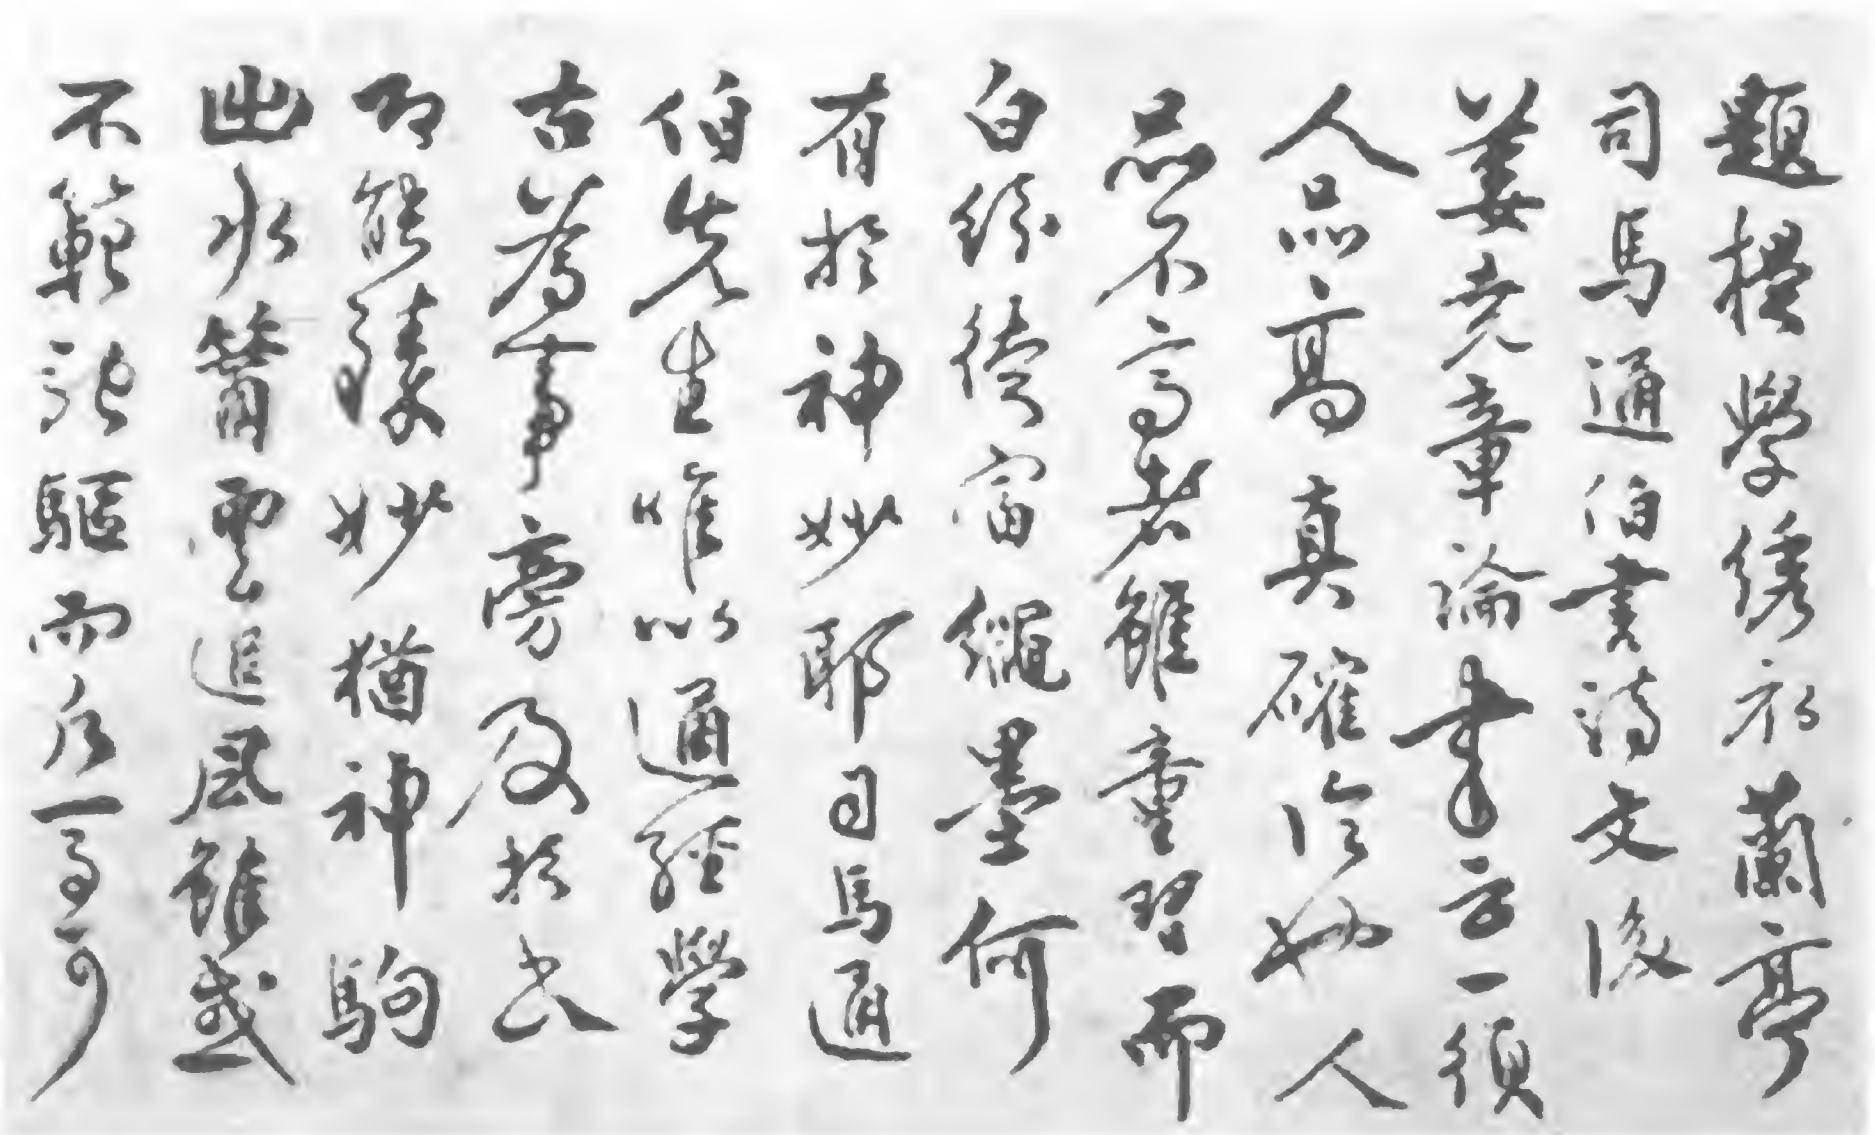 題樸學繡初蘭亭
司馬通伯書詩文後
姜堯章論書云一須
人品高真確論也人
品不高者雖童習而
白紛徒窘繩墨何
有於神妙耶司馬通
伯先生唯以通經學
古為事旁及於書
即能臻妙猶神駒
出水籋雲追風雖或
不範馳驅而一可